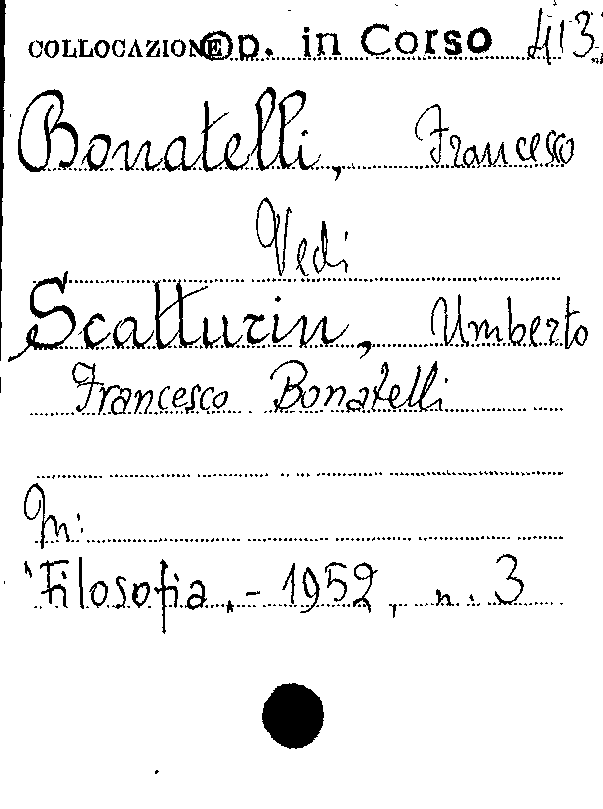 COLLOCAZIONE Op. in Corso 413
Bonatelli, Francesco
Vedi
Scatturin, Umberto
Francesco Bonatelli
In:
"Filosofia" - 1952, n. 3